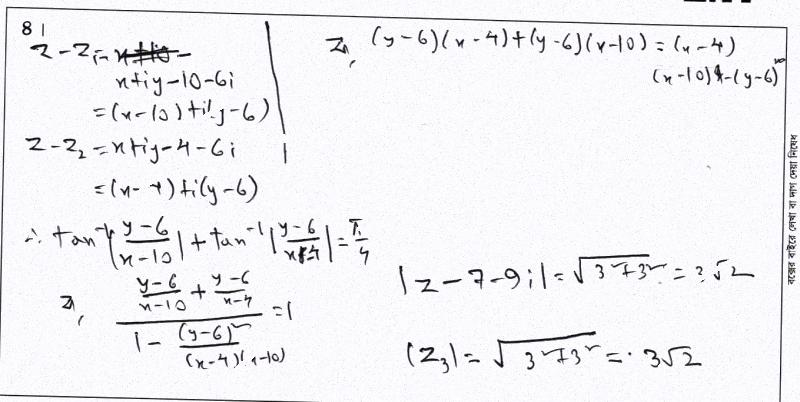 81
z - z₁ = x + iy - 10 - 6i
= (x-10) + i(y-6)
z - z₂ = x + iy - 4 - 6i
= (x-4) + i(y-6)
∴ tan⁻¹|(y-6)/(x-10)| + tan⁻¹|(y-6)/(x-4)| = π/4
⇒, ((y-6)/(x-10) + (y-6)/(x-4)) / (1 - (y-6)²/((x-4)(x-10))) = 1
⇒, (y-6)(x-4) + (y-6)(x-10) = (x-4)
(x-10) - (y-6)²
|z-7-9i| = √(3²+3²) = 3√2
|z₃| = √(3²+3²) = 3√2
বক্সের বাইরে লেখা বা দাগ দেয়া নিষেধ